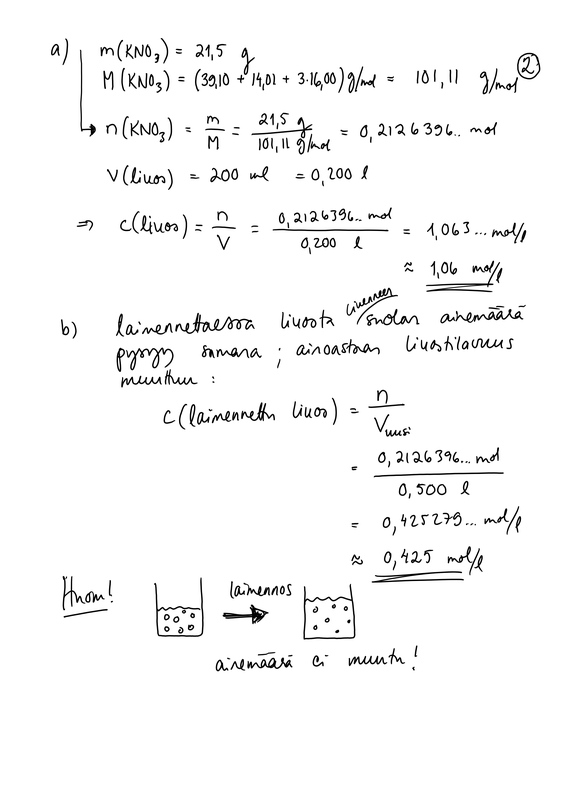 a) m(KNO₃) = 21,5 g
M(KNO₃) = (39,10 + 14,01 + 3·16,00) g/mol = 101,11 g/mol ②
n(KNO₃) = m/M = 21,5 g / 101,11 g/mol = 0,2126396.. mol
V(liuos) = 200 ml = 0,200 l
⇒ c(liuos) = n/V = 0,2126396.. mol / 0,200 l = 1,063... mol/l
≈ 1,06 mol/l
b) laimennettaessa liuosta liuenneen suolan ainemäärä
pysyy samana ; ainoastaan liuostilavuus
muuttuu :
c(laimennettu liuos) = n / Vuusi
= 0,2126396... mol / 0,500 l
= 0,425279... mol/l
≈ 0,425 mol/l
Huom! laimennos
ainemäärä ei muutu!